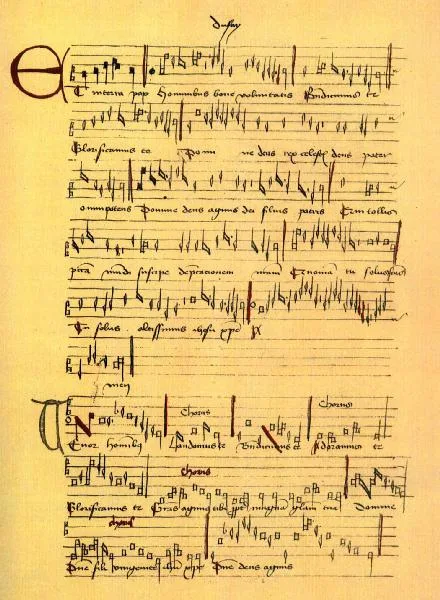 dufay
Et in terra pax hominibus bone voluntatis Benedicimus te
Glorificamus te Domine deus rex celestis deus pater
omnipotens Domine deus agnus dei filius patris Qui tollis
mundi suscipe deprecationem Quoniam tu solus
Tu solus altissimus ihesu xpe
men
Chorus Chorus
Tenor Laudamus te Benedicimus te Adoramus te
chorus
Glorificamus te Gras agimus tibi ppt magnam glam Domine
chorus
Dne fili unigenite ihu xpe Dne deus agnus